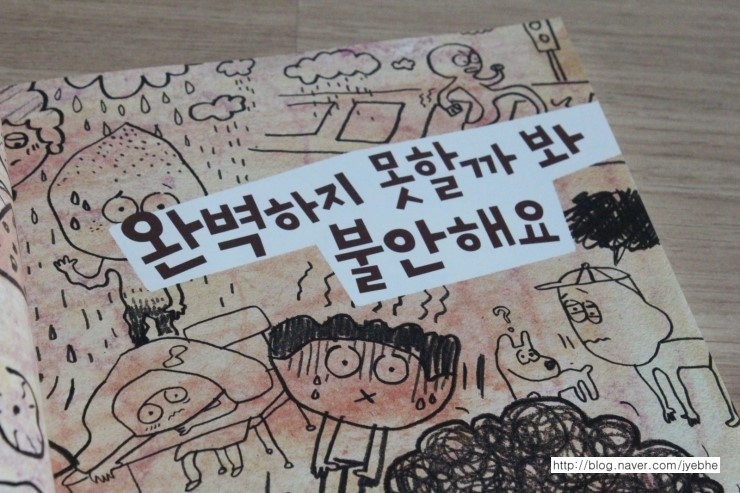 완벽하지 못할까 봐
불안해요
http://blog.naver.com/jyebhe